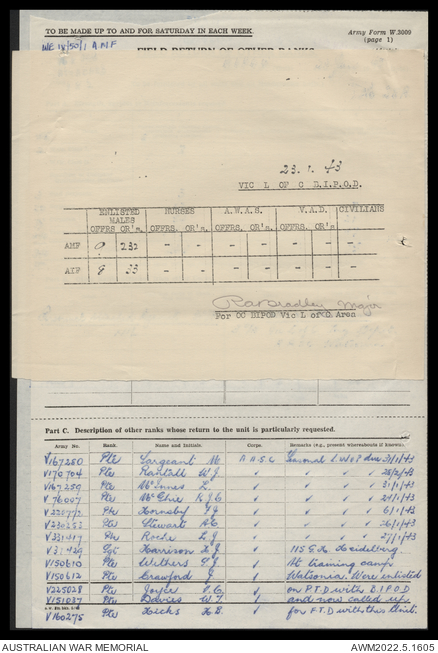 TO BE MADE UP TO AND FOR SATURDAY IN EACH WEEK.
Army Form W.3009
(page 1)
FIELD RETURN OF OTHER RANKS
23. 1. 43
VIC L OF C D.I.P.O.D.
ENLISTED MALES NURSES A.W.A.S. V.A.D. CIVILIANS
OFFRS OR's. OFFRS. OR's. OFFRS. OR's. OFFRS. OR's.
AMF 0 232 - - - - - - -
AIF 8 33 - - - - - - -
RaBradley Major
For OC DIPOD Vic L of C. Area
Part C. Description of other ranks whose return to the unit is particularly requested.
Army No. Rank. Name and Initials. Corps. Remarks (e.g., present whereabouts if known).
V167280 Pte Sargeant M. A.A.S.C. 31/1/43
V170704 Pte W.J. ✓ ✓ ✓ 28/2/43
V167259 Pte McInnes L. ✓ ✓ ✓ 31/1/43
V76007 Pte McGhie R.J.C. ✓ ✓ ✓ 24/1/43
Pte Hornsby ✓ ✓ ✓ 6/1/43
Pte Stewart A.C. ✓ ✓ ✓ 26/1/43
V331417 Pte Roche L.J. ✓ ✓ ✓ 27/1/43
Sgt Harrison ✓ 115 G.H. Heidelberg.
V150610 Pte Withers ✓ At training camp
V150612 Pte Crawford J. ✓ Watsonia. Were enlisted
V225028 Pte Joyce ✓ on F.T.D with D.I.P.O.D
V151037 Pte Davies W.T. ✓ and now called up
V160275 Pte Hicks H.B. ✓ for F.T.D with the Unit.
AUSTRALIAN WAR MEMORIAL
AWM2022.5.1605